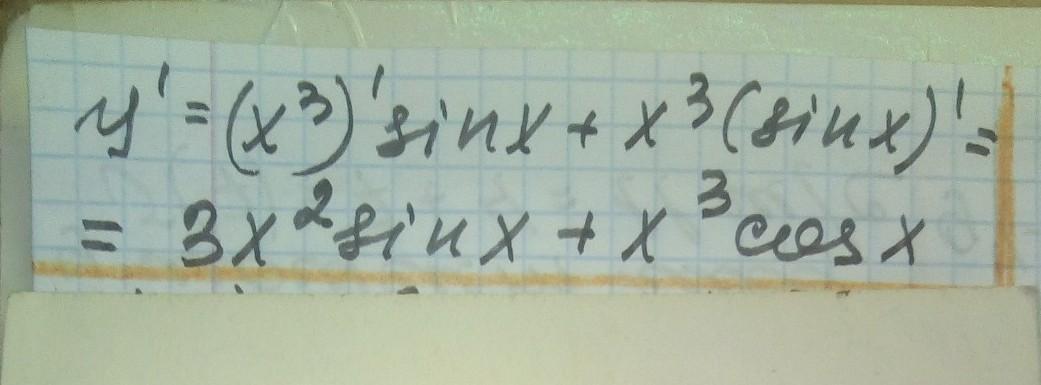 y' = (x³)' sin x + x³ (sin x)' =
= 3x² sin x + x³ cos x